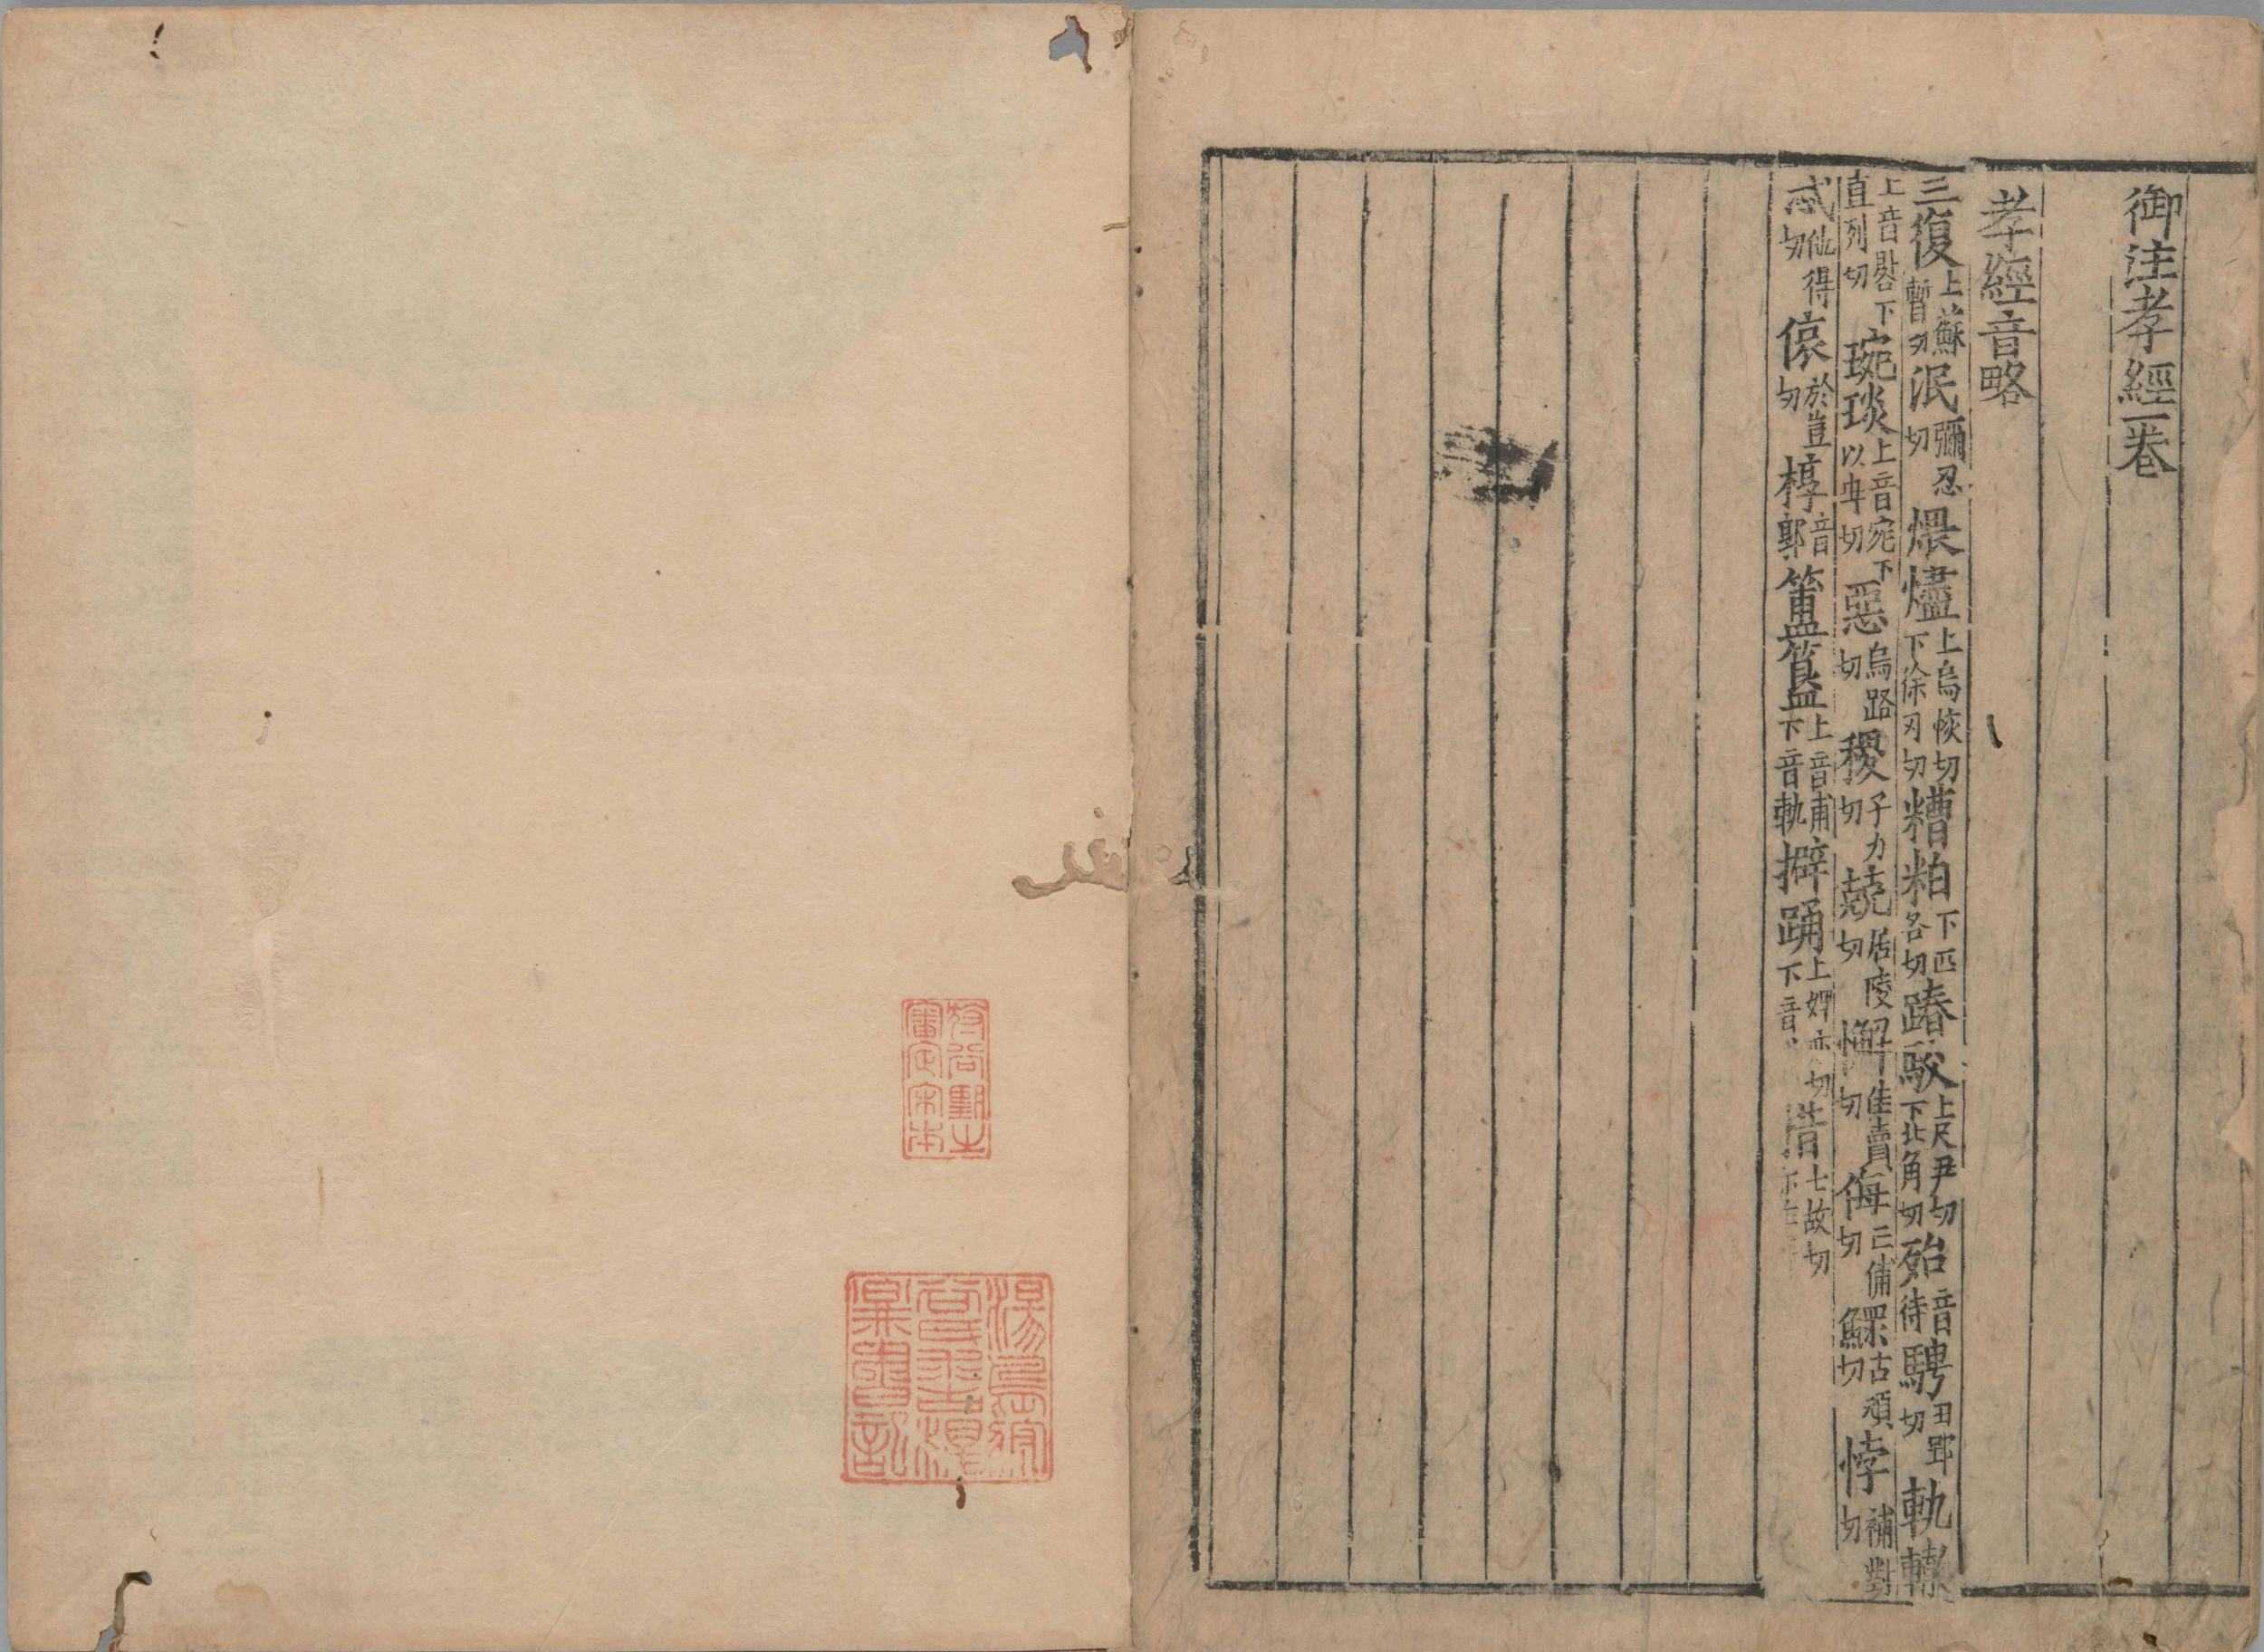 御注孝經一卷
孝經音略
三復上蘇暫切泯彌忍切煨燼上烏恢切下徐刃切糟粕下匹各切踳駮上尺尹切下北角切殆音待騁丑郢切軌轍
上音晷下直列切琬琰上音宛下以冉切惡烏路切稷子力切兢居陵切懈佳賣切侮亡甫切鰥古頑切悖補對切
忒他得切偯於豈切椁音郭簠簋上音甫下音軌擗踊上婢亦切下音措七故切
牧翁
審定宋本